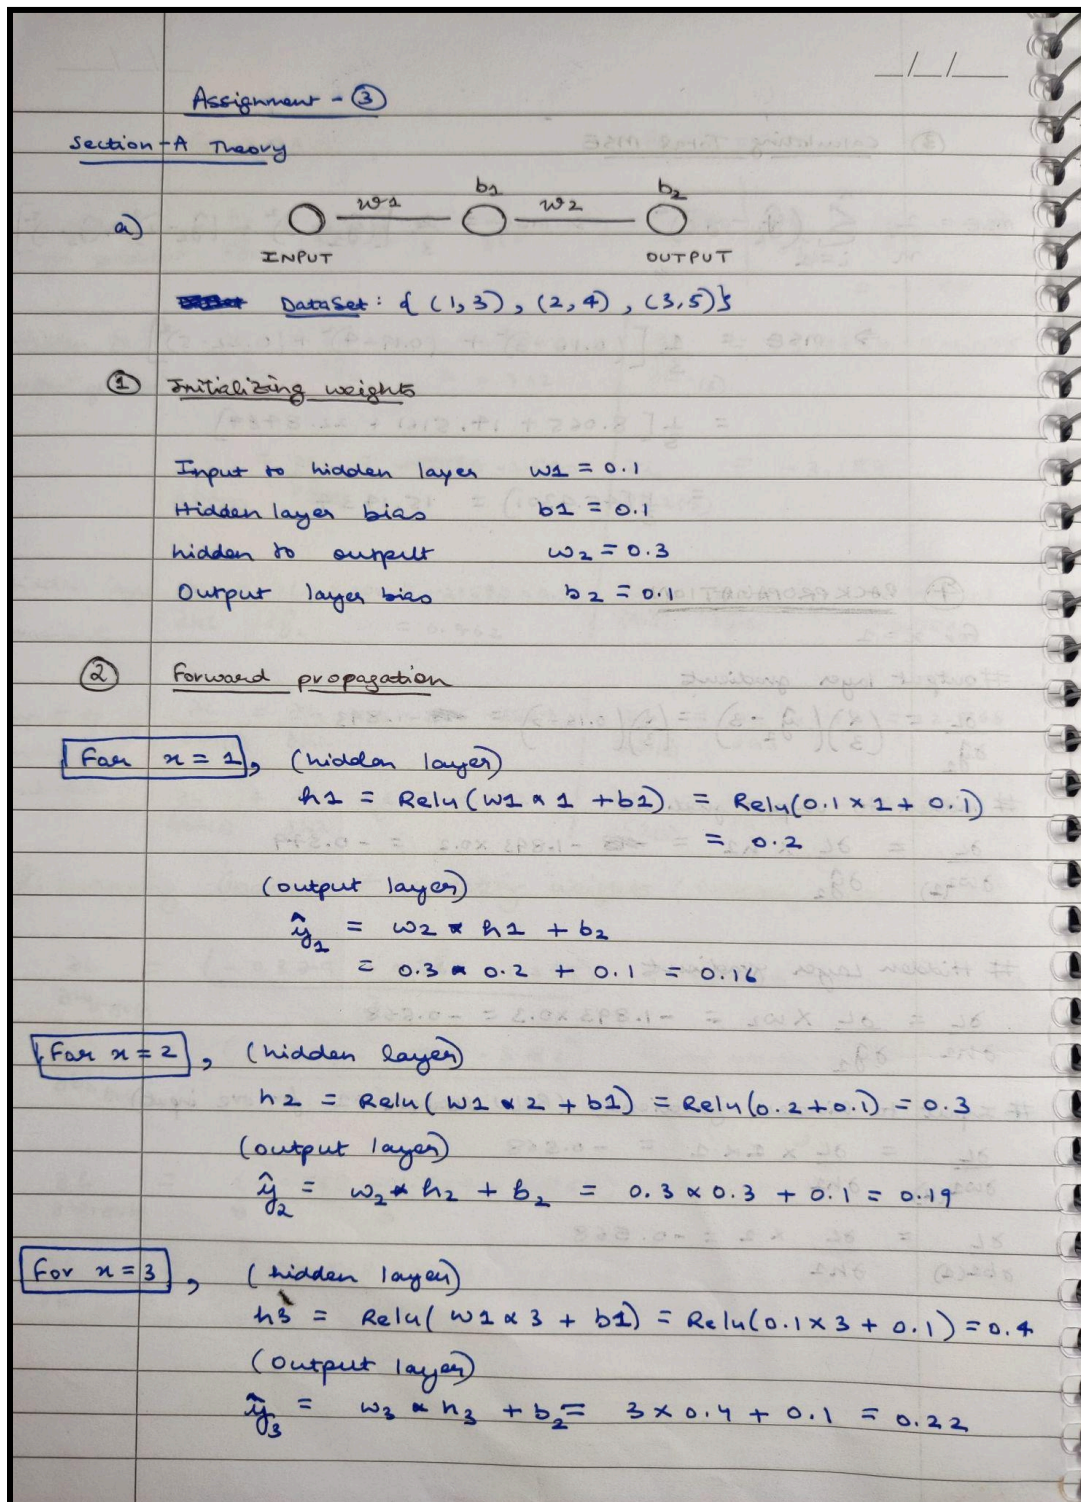 __/__/____
Assignment - ③
Section-A Theory
a)
w1 b1 w2 b2
INPUT OUTPUT
DataSet : { (1,3) , (2,4) , (3,5)}
① Initializing weights
Input to hidden layer w1 = 0.1
Hidden layer bias b1 = 0.1
hidden to output w2 = 0.3
Output layer bias b2 = 0.1
② Forward propagation
For x = 1, (hidden layer)
h1 = Relu(w1 * 1 + b1) = Relu(0.1 × 1 + 0.1)
= 0.2
(output layer)
ŷ1 = w2 * h1 + b2
= 0.3 * 0.2 + 0.1 = 0.16
For x = 2 , (hidden layer)
h2 = Relu( w1 * 2 + b1) = Relu(0.2+0.1) = 0.3
(output layer)
ŷ2 = w2 * h2 + b2 = 0.3 × 0.3 + 0.1 = 0.19
For x = 3 , (hidden layer)
h3 = Relu( w1 * 3 + b1) = Relu(0.1×3 + 0.1) = 0.4
(Output layer)
ŷ3 = w3 * h3 + b2 = 3 × 0.4 + 0.1 = 0.22